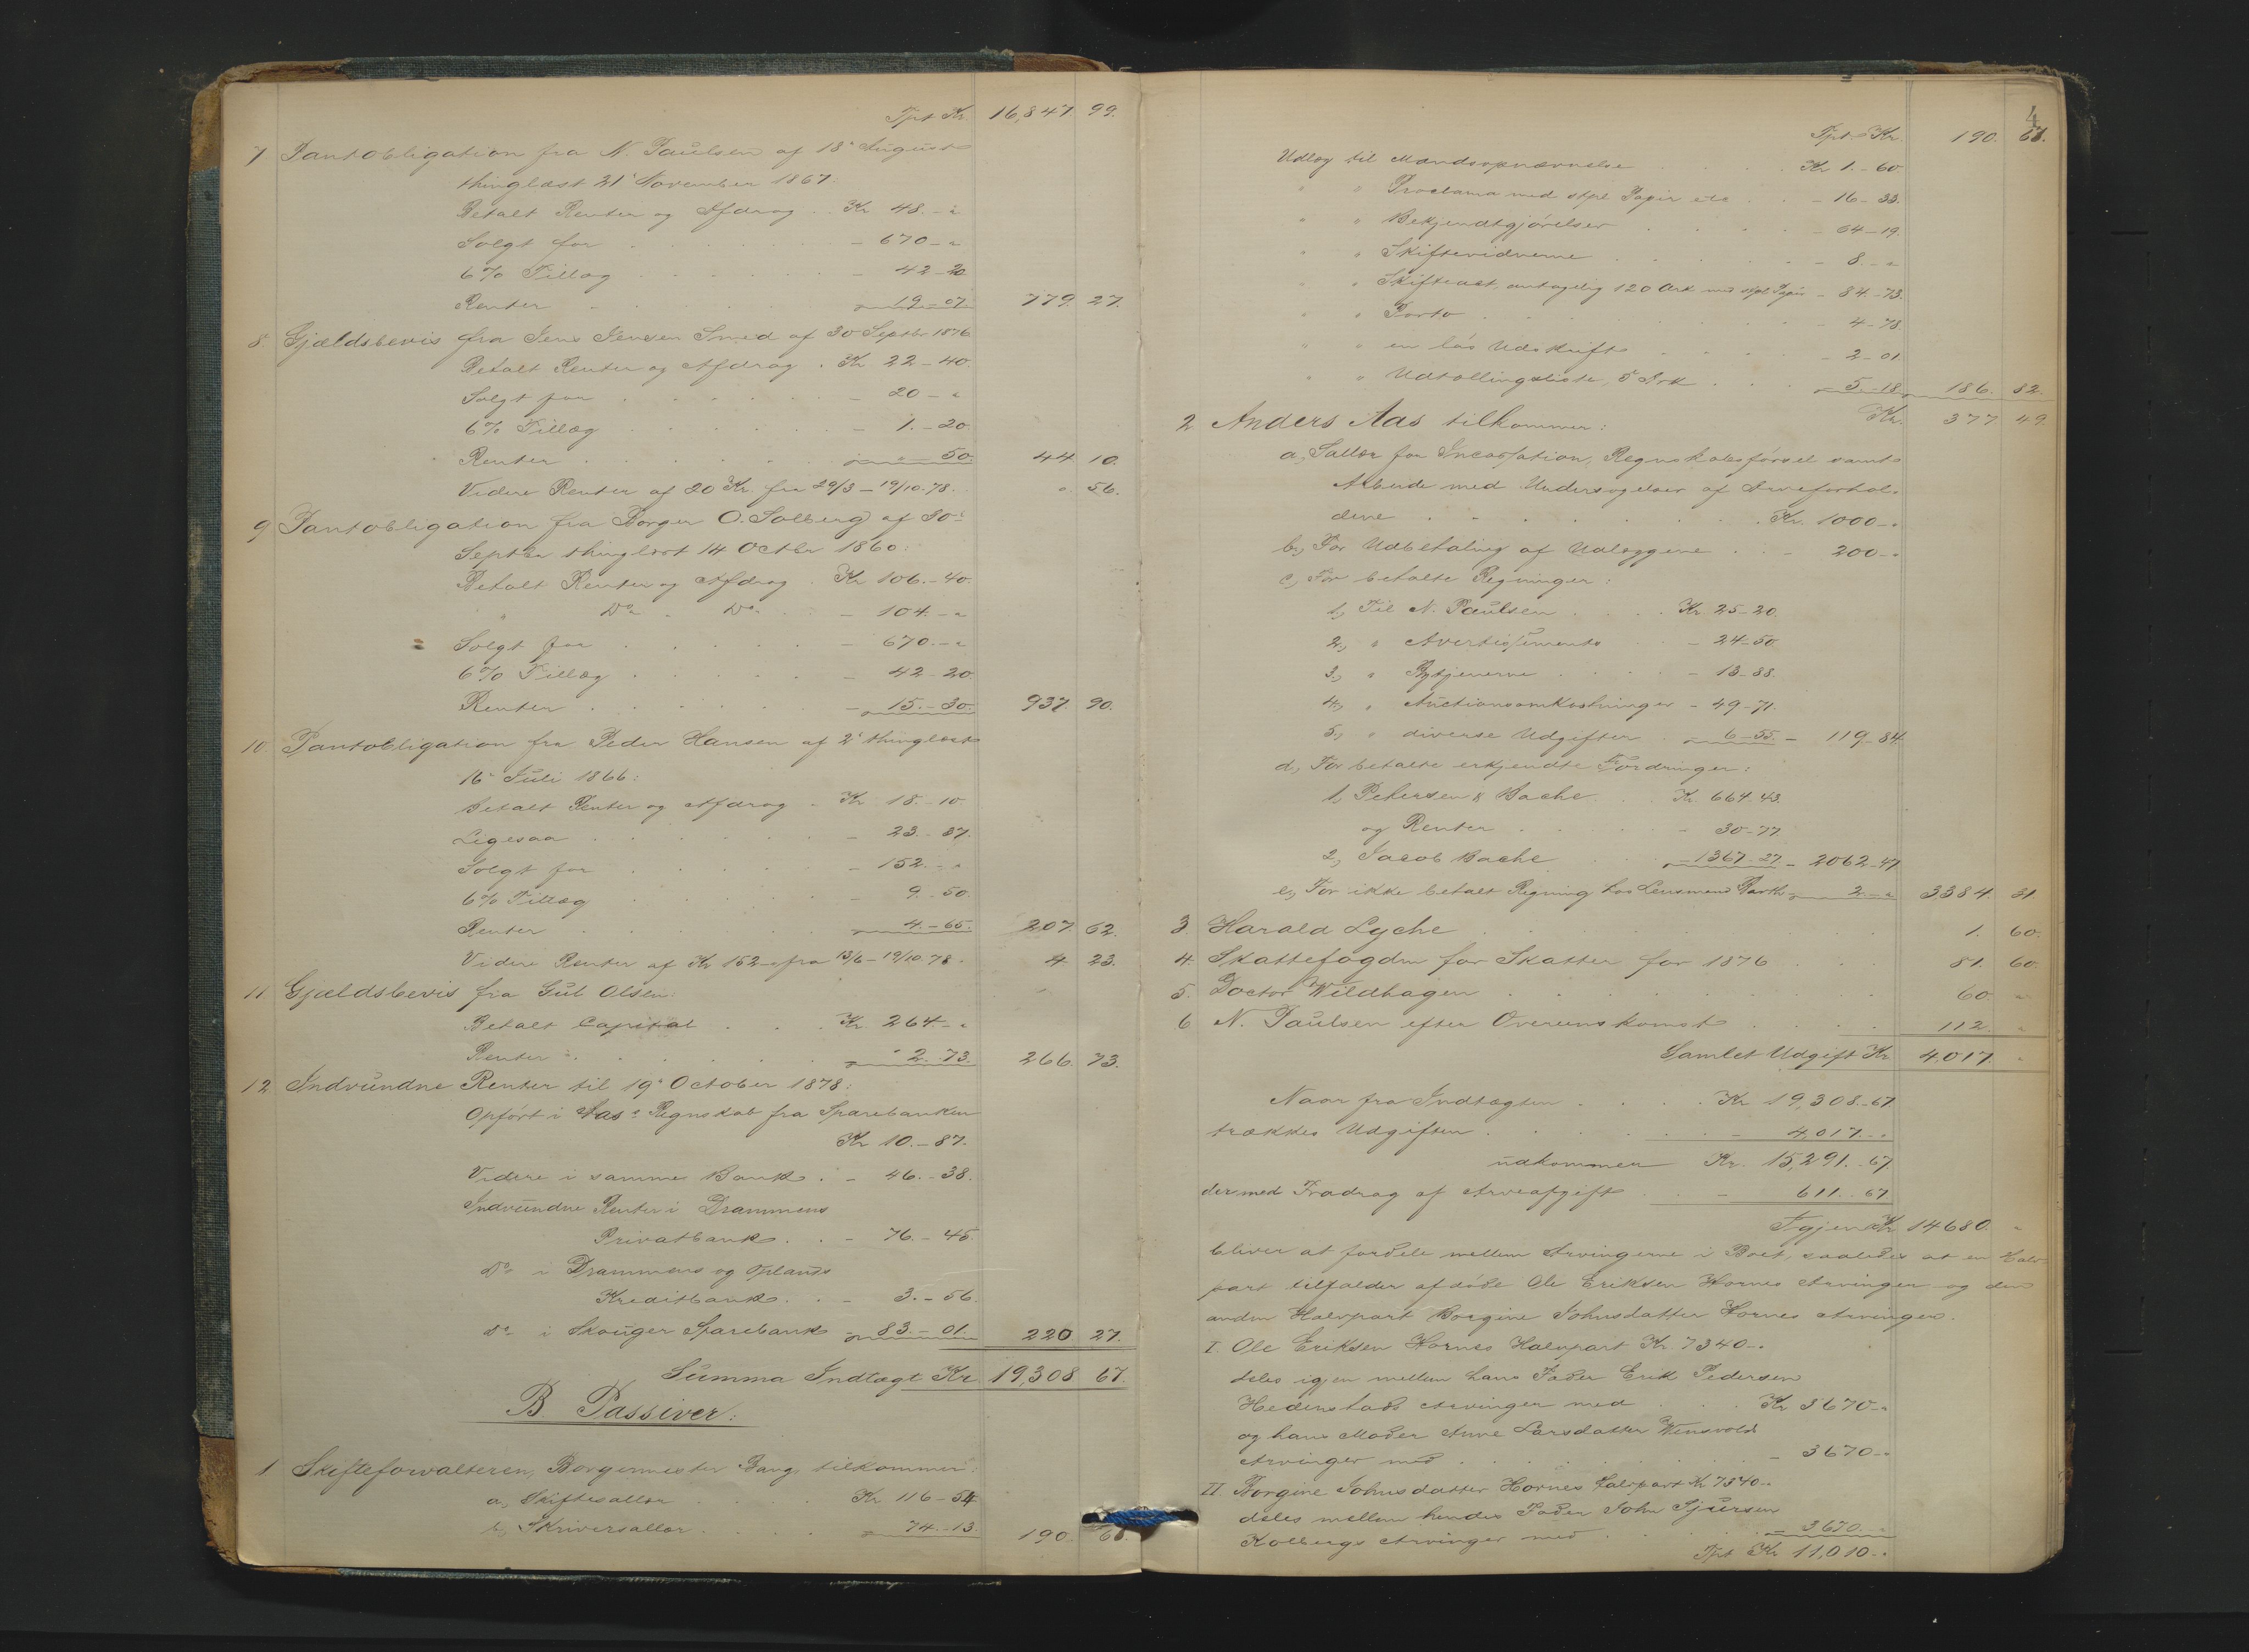 Tpt Kr. 16,847. 99.
7 Pantobligation fra N. Paulsen af 18de August
thinglæst 21de November 1867:
Betalt Renter og Afdrag . . Kr 48. - "
Solgt for . . . . . . - 670 - "
6 % Tillæg . . . . . . - 42 - 20
Renter . . . . . . - 19 - 07. 779. 27.
8. Gjældsbevis fra Jens Jensen Smed af 30 Septbr 1876
Betalt Renter og Afdrag . Kr 22 - 40.
Solgt for . . . . . . - 20 - "
6 % Tillæg . . . . . . - 1. - 20.
Renter . . . . . . - " - 50. 44 10.
Videre Renter af 20 Kr. fra 29/3 - 19/10.78. ". 56.
9 Pantobligation fra Borger O. Solberg af 30te
Septbr thinglæst 14 Octbr 1860:
Betalt Renter og Afdrag . Kr 106. - 40.
" Do " Do . . - 104. - "
Solgt for . . . . . - 670. - "
6 % Tillæg . . . . . - 42 - 20.
Renter . . . . . . - 15. - 30. 937. 90.
10. Pantobligation fra Peder Hansen af 2de thinglæst
16de Juli 1866:
Betalt Renter og Afdrag - Kr 18. - 10.
Ligesaa . . . . . . - 23. - 37.
Solgt for . . . . . . - 152. - "
6 % Tillæg . . . . . . - 9. - 50.
Renter . . . . . . - 4. - 65. 207. 62.
Videre Renter af Kr 152 - " fra 13/6 - 19/10 78 . 4 23.
11 Gjældsbevis fra Gul Olsen:
Betalt Capital . . . Kr. 264 - "
Renter . . . . . . - " 2. 73. 266. 73.
12. Indvundne Renter til 19de October 1878:
Opført i Aas's Regnskab fra Sparebanken
Kr 10. - 87.
Videre i samme Bank . - 46. - 38.
Indvundne Renter i Drammens
Privatbank . . - 76. - 45.
Do i Drammens og Oplands
Kreditbank . . - 3. - 56.
Do i Skouger Sparebank - 83. - 01. 220 27.
Summa Indtægt Kr 19,308 67.
B. Passiver:
1 Skifteforvalteren, Borgermester Bang, tilkommer:
a, Skiftesallær . . . . Kr 116 - 54
b, Skriversallær . . . . - 74. - 13. 190. 67.
4
Tpt. Kr. 190. 67.
Udlæg til Mandsopnævnelse . . . . Kr 1. - 60
" " Proclama med stpl Papir etc . . - 16 - 33.
" " Bekjendtgjørelser . . . . . - 64 - 19.
" " Skiftevidnerne . . . . . - 8. - "
" " Skifteact, antagelig 120 Ark med stpl. Papir - 84. - 73.
" " Porto . . . . . . . - 4 - 78
" " en løs Udskrift . . . . . - 2 - 01.
" " Udtællingsliste, 5 Ark . . . - 5 - 18. 186. 82.
Kr. 377 49.
2 Anders Aas tilkommer:
a, Sallær for Incassation, Regnskabsførsel samt
Arbeide med Undersøgelser af Arveforhol-
dene . . . . . . . . Kr. 1000 - "
b, For Udbetaling af Udlæggene . . - 200 - "
c, For betalte Regninger:
1, Til N. Paulsen . . . . Kr. 25 - 20.
2, " Avertissements - 24 - 50.
3, " . . . . - 13 - 88.
4, " Auctionsomkostninger - 49 - 71.
5, " diverse Udgifter . - 6 - 55. - 119 - 84.
d, For betalte erkjendte Fordringer:
1, Petersen & Bache . . Kr. 664. 43.
og Renter . . . . - 30 - 77.
2, Jacob Bache . . . - 1367. 27. - 2062 - 47
e, For ikke betalt Regning hos Lensmand - 2. - " 3384. 31
3. Harald Lyche . . . . . . . . 1. 60.
4. Skattefogden for Skatter for 1876 . . . 81. 60.
5. Doctor Wildhagen . . . . . . . 60. "
6 N. Paulsen efter Overenskomst . . . . 112. "
Samlet Udgift Kr 4,017. "
Naar fra Indtægten . . . . Kr 19,308. - 67
trækkes Udgiften . . . . . . - 4,017. - "
udkommer Kr. 15,291. - 67.
dermed Fradrag af Arveafgift . . - 611. 67
Igjen Kr 14680. "
bliver at fordele mellem Arvingerne i Boet, saaledes at en Halv-
part tilfalder afdøde Ole Eriksen Hornes Arvinger og den
anden Halvpart Borgine Johnsdatter Hornes Arvinger.
I. Ole Eriksen Hornes Halvpart Kr. 7340 - "
deles igjen mellem hans Fader Erik Pedersen
Hedenstads Arvinger med . . . Kr 3670 - "
og hans Moder Anne Larsdatter Wensvold
Arvinger med . . . . . . . - 3670 - "
II. Borgine Johnsdatter Hornes Halvpart Kr 7340 - "
deles mellem hendes Fader John Sjursen
Kolbergs Arvinger med . . . . . - 3670. "
Tpt Kr 11,010 - "